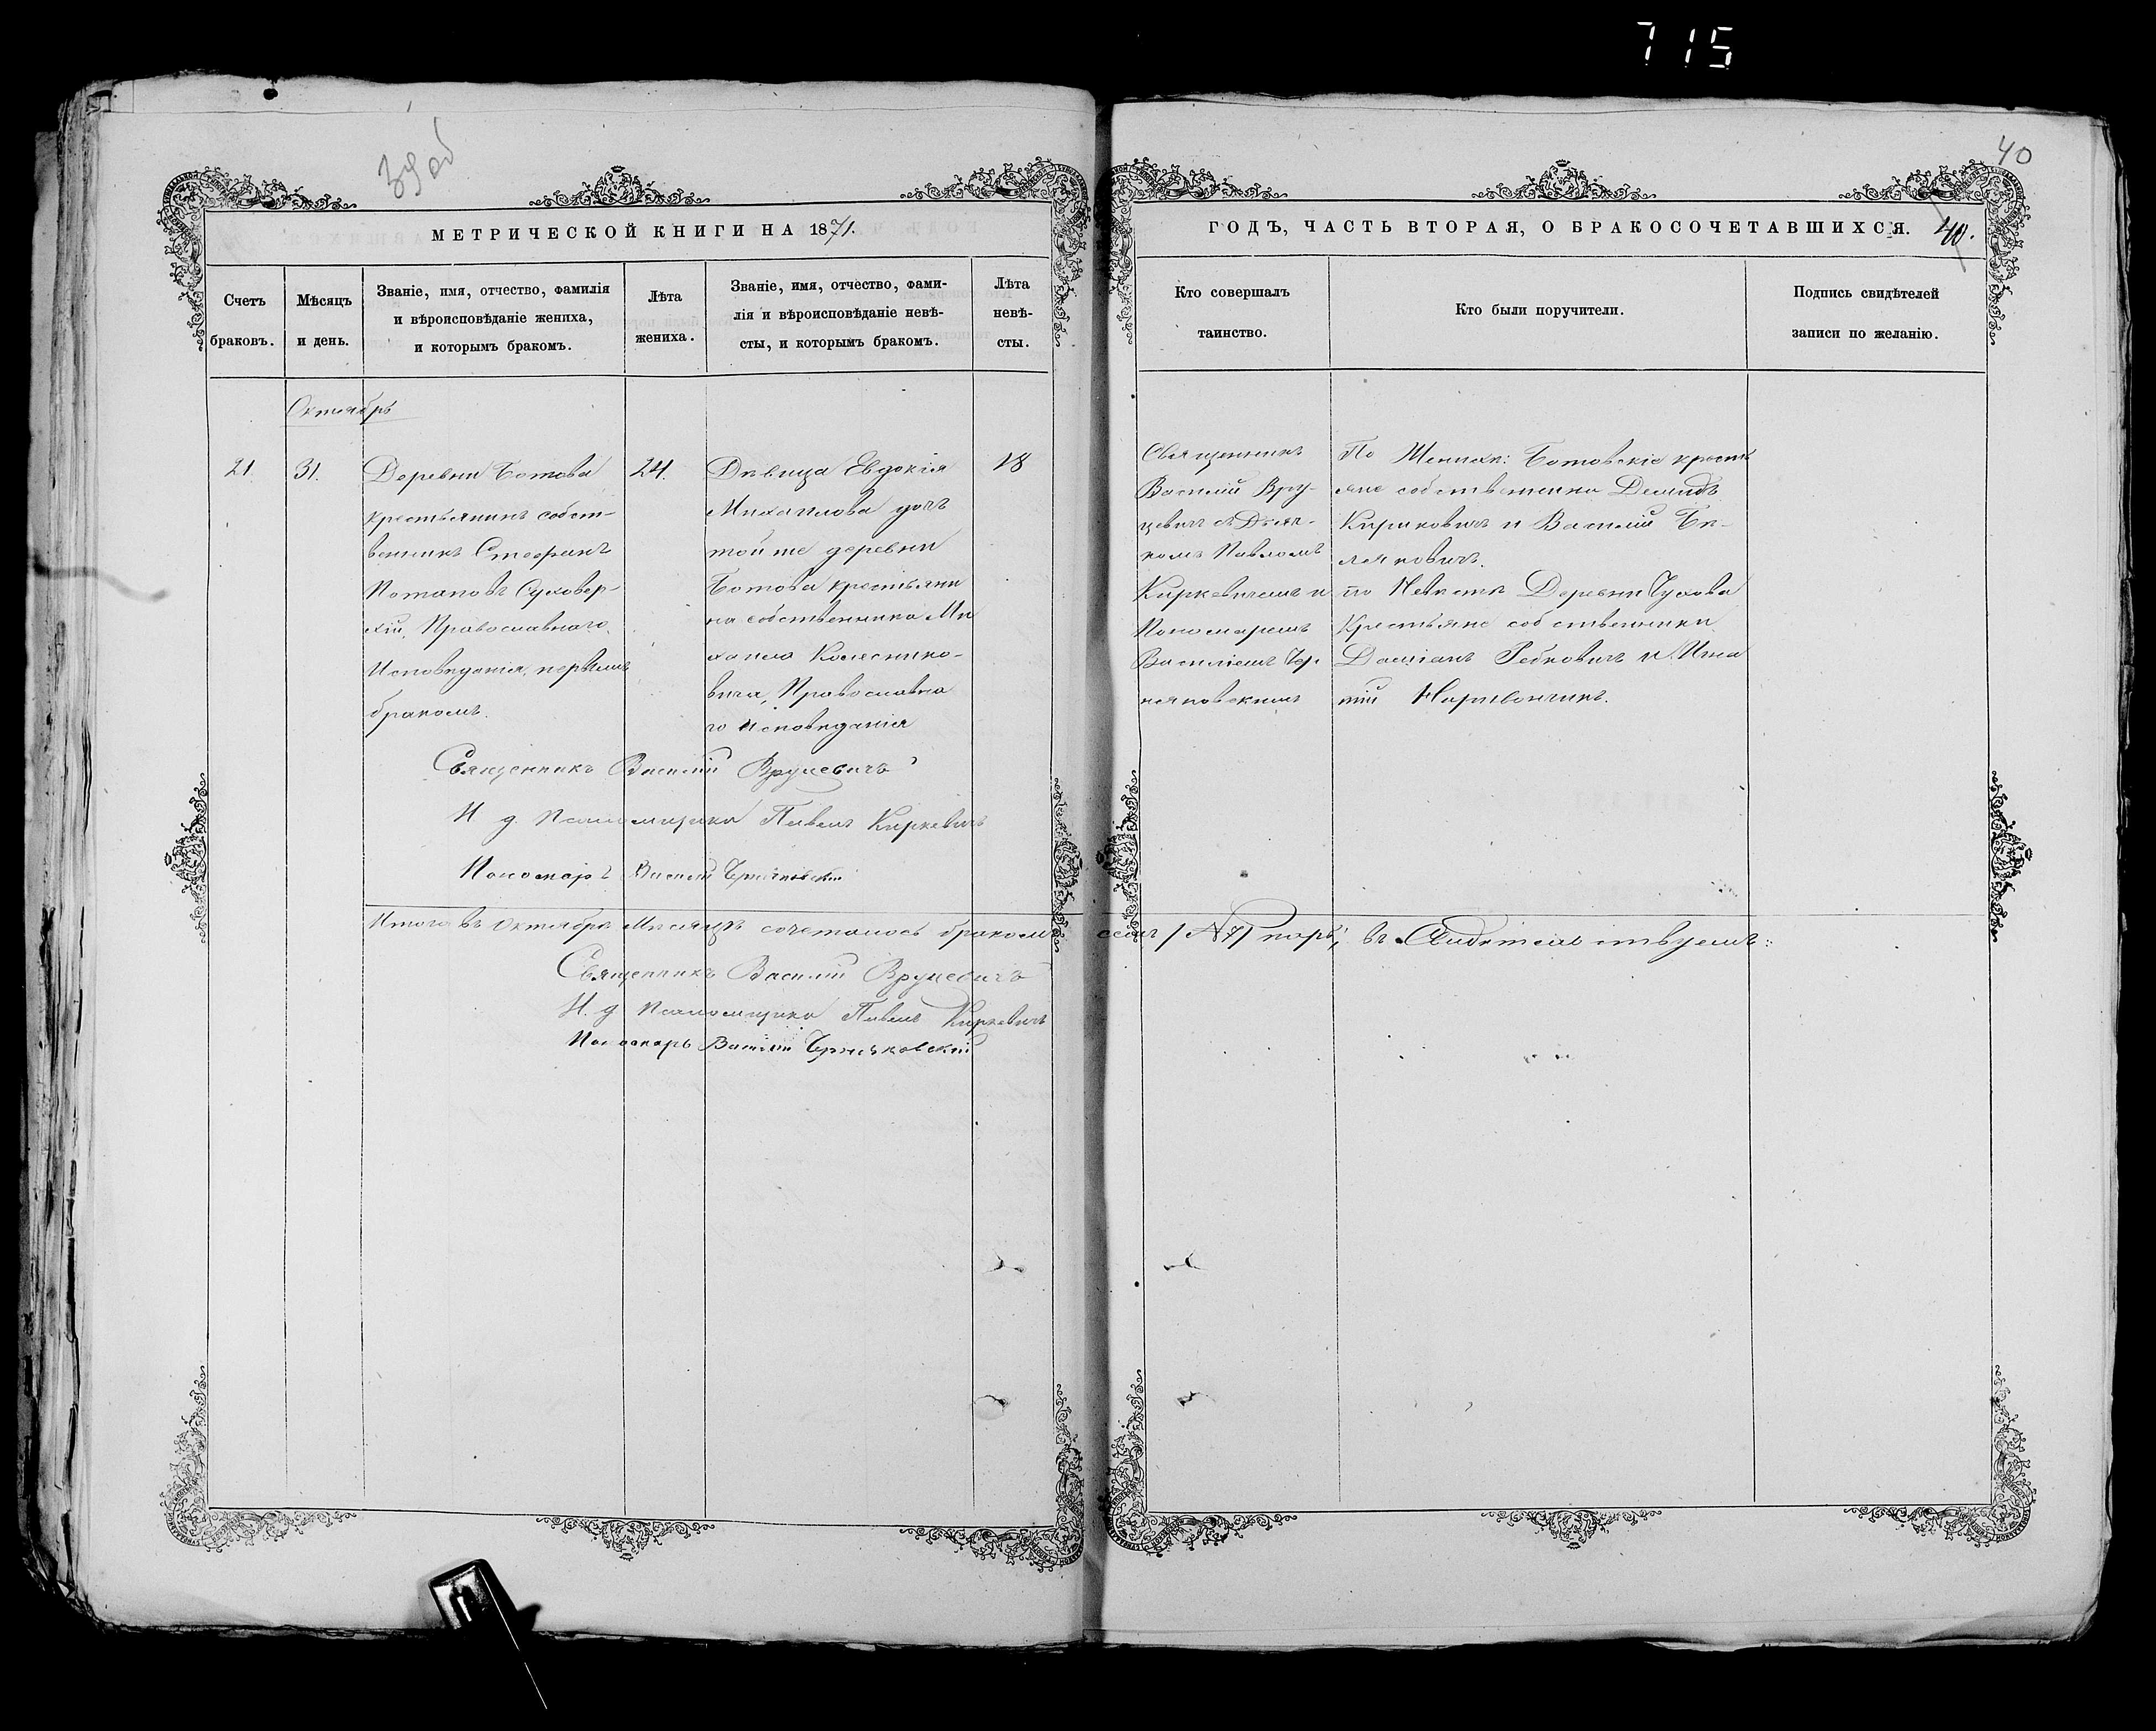 715
39 об
40
МЕТРИЧЕСКОЙ КНИГИ НА 1871.
ГОДЪ, ЧАСТЬ ВТОРАЯ, О БРАКОСОЧЕТАВШИХСЯ.
40.
Счетъ
браковъ.
Мѣсяцъ
и день.
Званіе, имя, отчество, фамилія
и вѣроисповѣданіе жениха,
и которымъ бракомъ.
Лѣта
жениха.
Званіе, имя, отчество, фами-
лія и вѣроисповѣданіе невѣ-
сты, и которымъ бракомъ.
Лѣта
невѣ-
сты.
Кто совершалъ
таинство.
Кто были поручители.
Подпись свидѣтелей
записи по желанію.
Октябрь
21.
31.
Деревни Ботова
крестьянинъ собст-
венникъ Стефанъ
Потаповъ Суховер-
хій, Православнаго
Исповѣданія, первымъ
бракомъ.
24.
Дѣвица Евдокія
Михаилова дочь
той же деревни
Ботова крестьяни
на собственника Ми
хаила Колеснико-
вича, Православна
го Исповѣданія
18
Священникъ
Василій Вру-
цевичъ съ Дьяч-
комъ Павломъ
Киркевичемъ и
Пономаремъ
Василіемъ Чер-
няковскимъ
По Женихѣ: Ботовскіе кресть
яне собственники Демидъ
Кириковичъ и Василій
ляковичъ.
по Невѣстѣ Деревни Чухова
Крестьяне собственники
Даміанъ Рабковичъ и Игна
тій
Священникъ Василій Вруцевичъ
И. д. Псаломщика Павелъ Киркевичъ
Пономарь Василій Черняковскій
Итого въ Октябрѣ Мѣсяцѣ сочеталось бракомъ семь /№ 7/ паръ, въ
Священникъ Василій Вруцевичъ
И. д. Псаломщика Павелъ Киркевичъ
Пономарь Василій Черняковскій